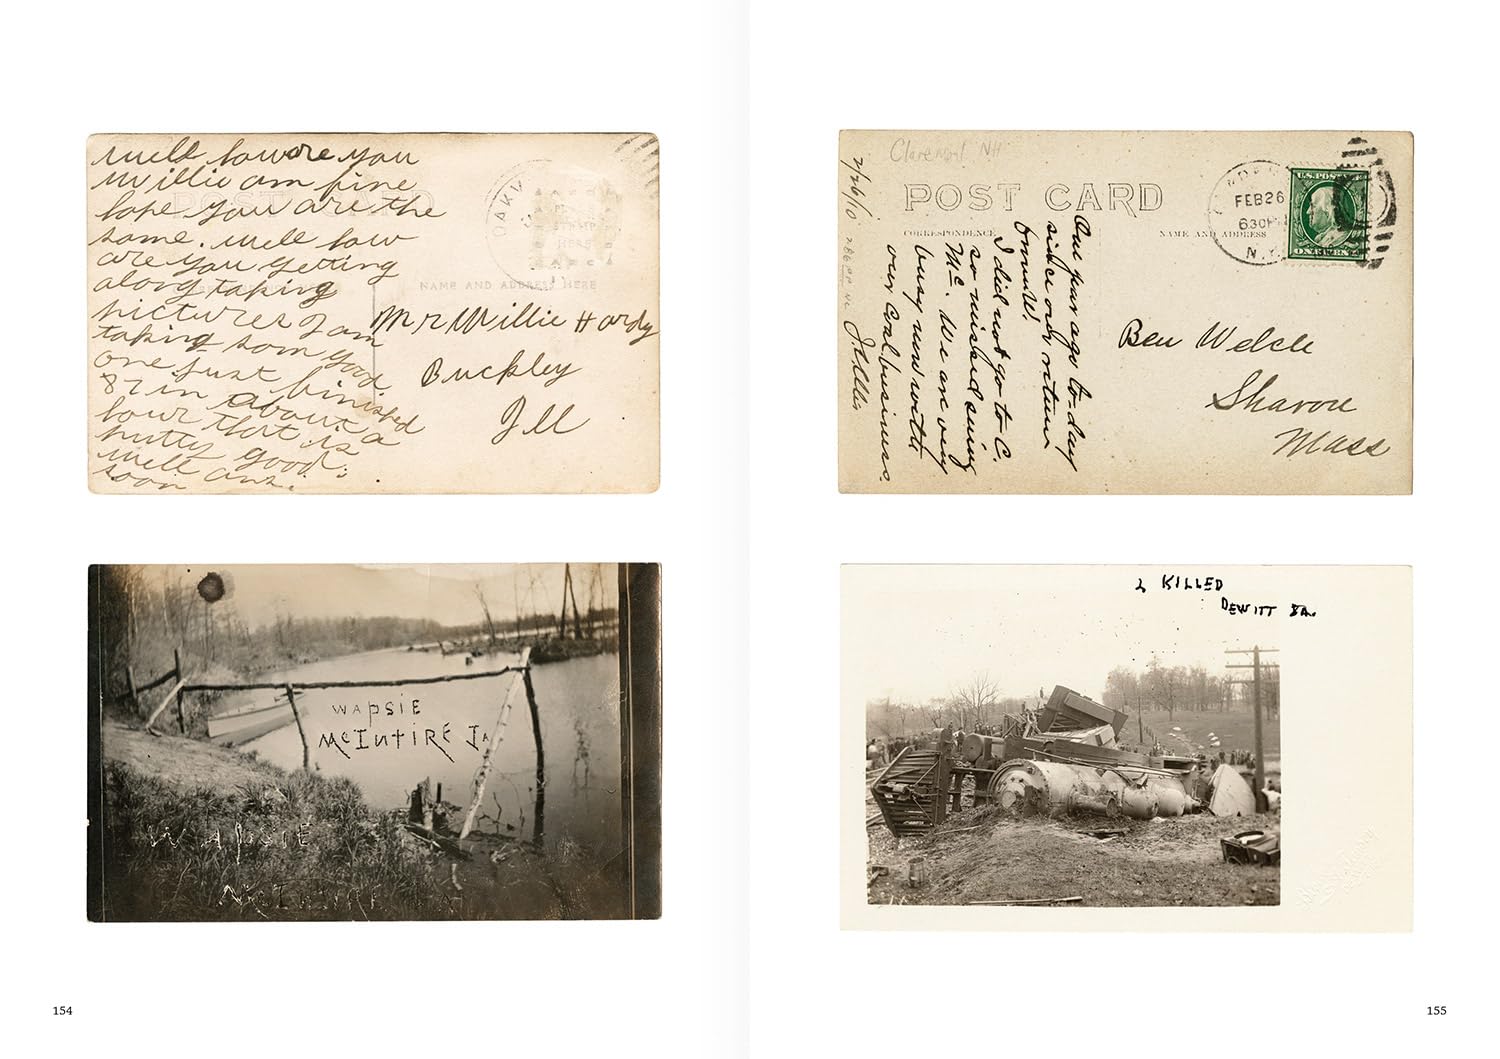 well howore you
Willie am fine
hope you are the
same. well how
are you getting
along taking
pictures I am
taking som good
one just finished
87 in about a
hour that is
putty good.
well ans.
soon
POST CARD
OAKV
STAMP
HERE
NAME AND ADDRESS HERE
Mr Willie Hardy
Buckley
Ill
WAPSIE
McINTIRE IA
WAPSIE
McINTIRE
154
Claremont NH
2/26/10
POST CARD
CORRESPONDENCE
NAME AND ADDRESS
FEB 26
630 PM
N.Y.
U.S. POSTAGE
ONE CENT
One year ago to-day
since our return
I did not go to C.
so missed seeing
Mc. We are very
busy now with
our coal business.
Ben Welch
Sharon
Mass
2 KILLED
DEWITT IA.
155